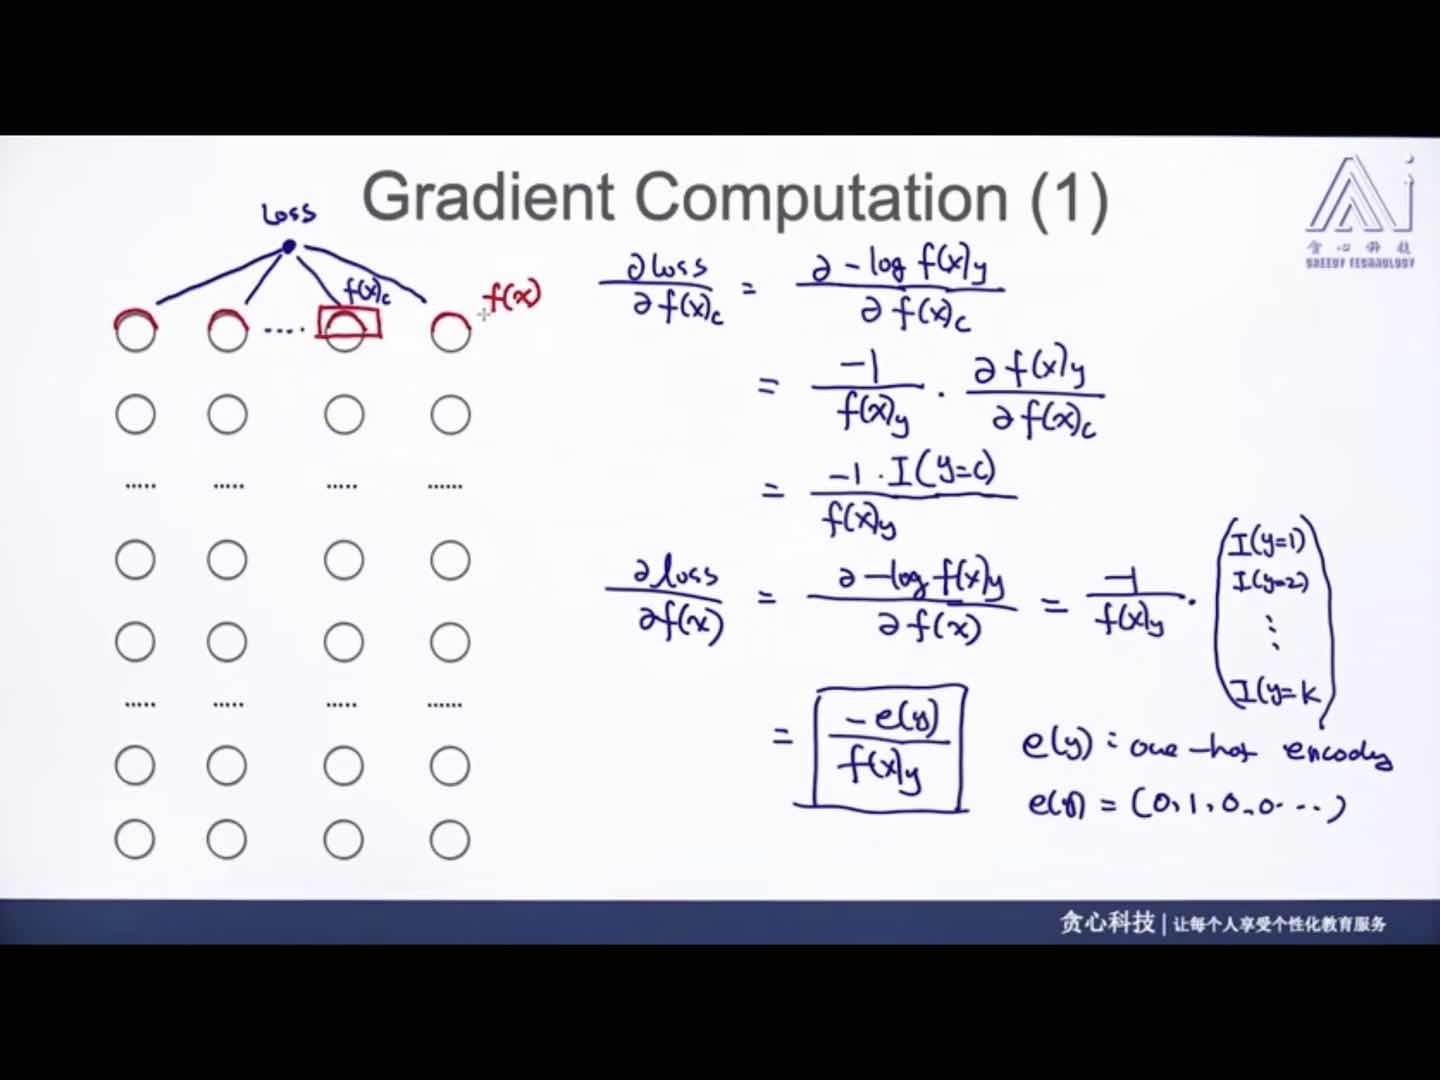 Gradient Computation (1)
贪心科技
GREEDY TECHNOLOGY
Loss
f(x)c
f(x)
∂ loss / ∂ f(x)c = ∂ -log f(x)y / ∂ f(x)c
= -1 / f(x)y · ∂ f(x)y / ∂ f(x)c
= -1 · I(y=c) / f(x)y
∂ loss / ∂ f(x) = ∂ -log f(x)y / ∂ f(x) = -1 / f(x)y · ( I(y=1)
I(y=2)
⋮
I(y=k )
= -e(y) / f(x)y
e(y) : one-hot encoding
e(y) = (0,1,0,0...)
贪心科技 | 让每个人享受个性化教育服务